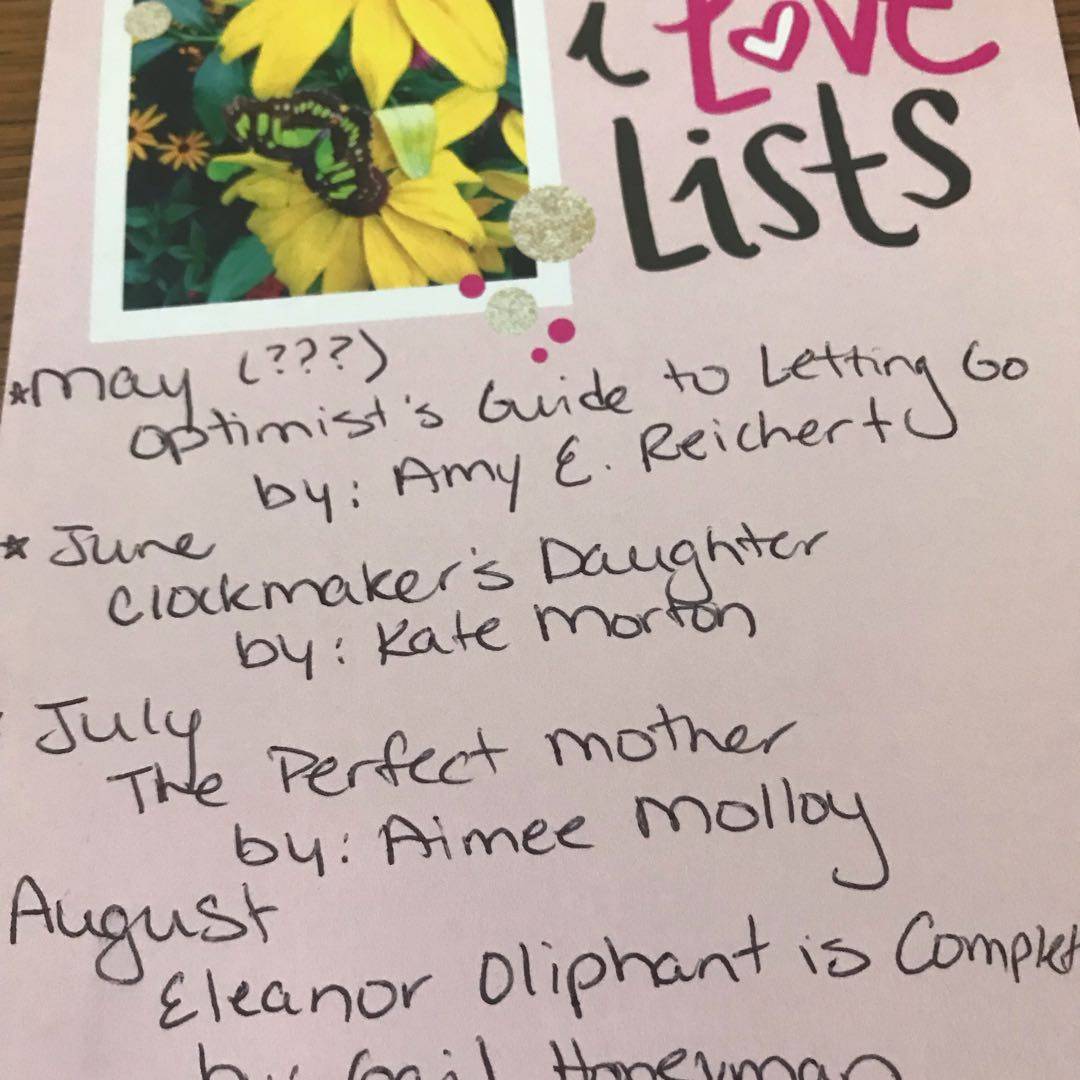 i Love
Lists
*May (???)
Optimist's Guide to Letting Go
by: Amy E. Reichert
* June
Clockmaker's Daughter
by: Kate Morton
July
The Perfect Mother
by: Aimee Molloy
August
Eleanor Oliphant is Complet
by Gail Honeyman